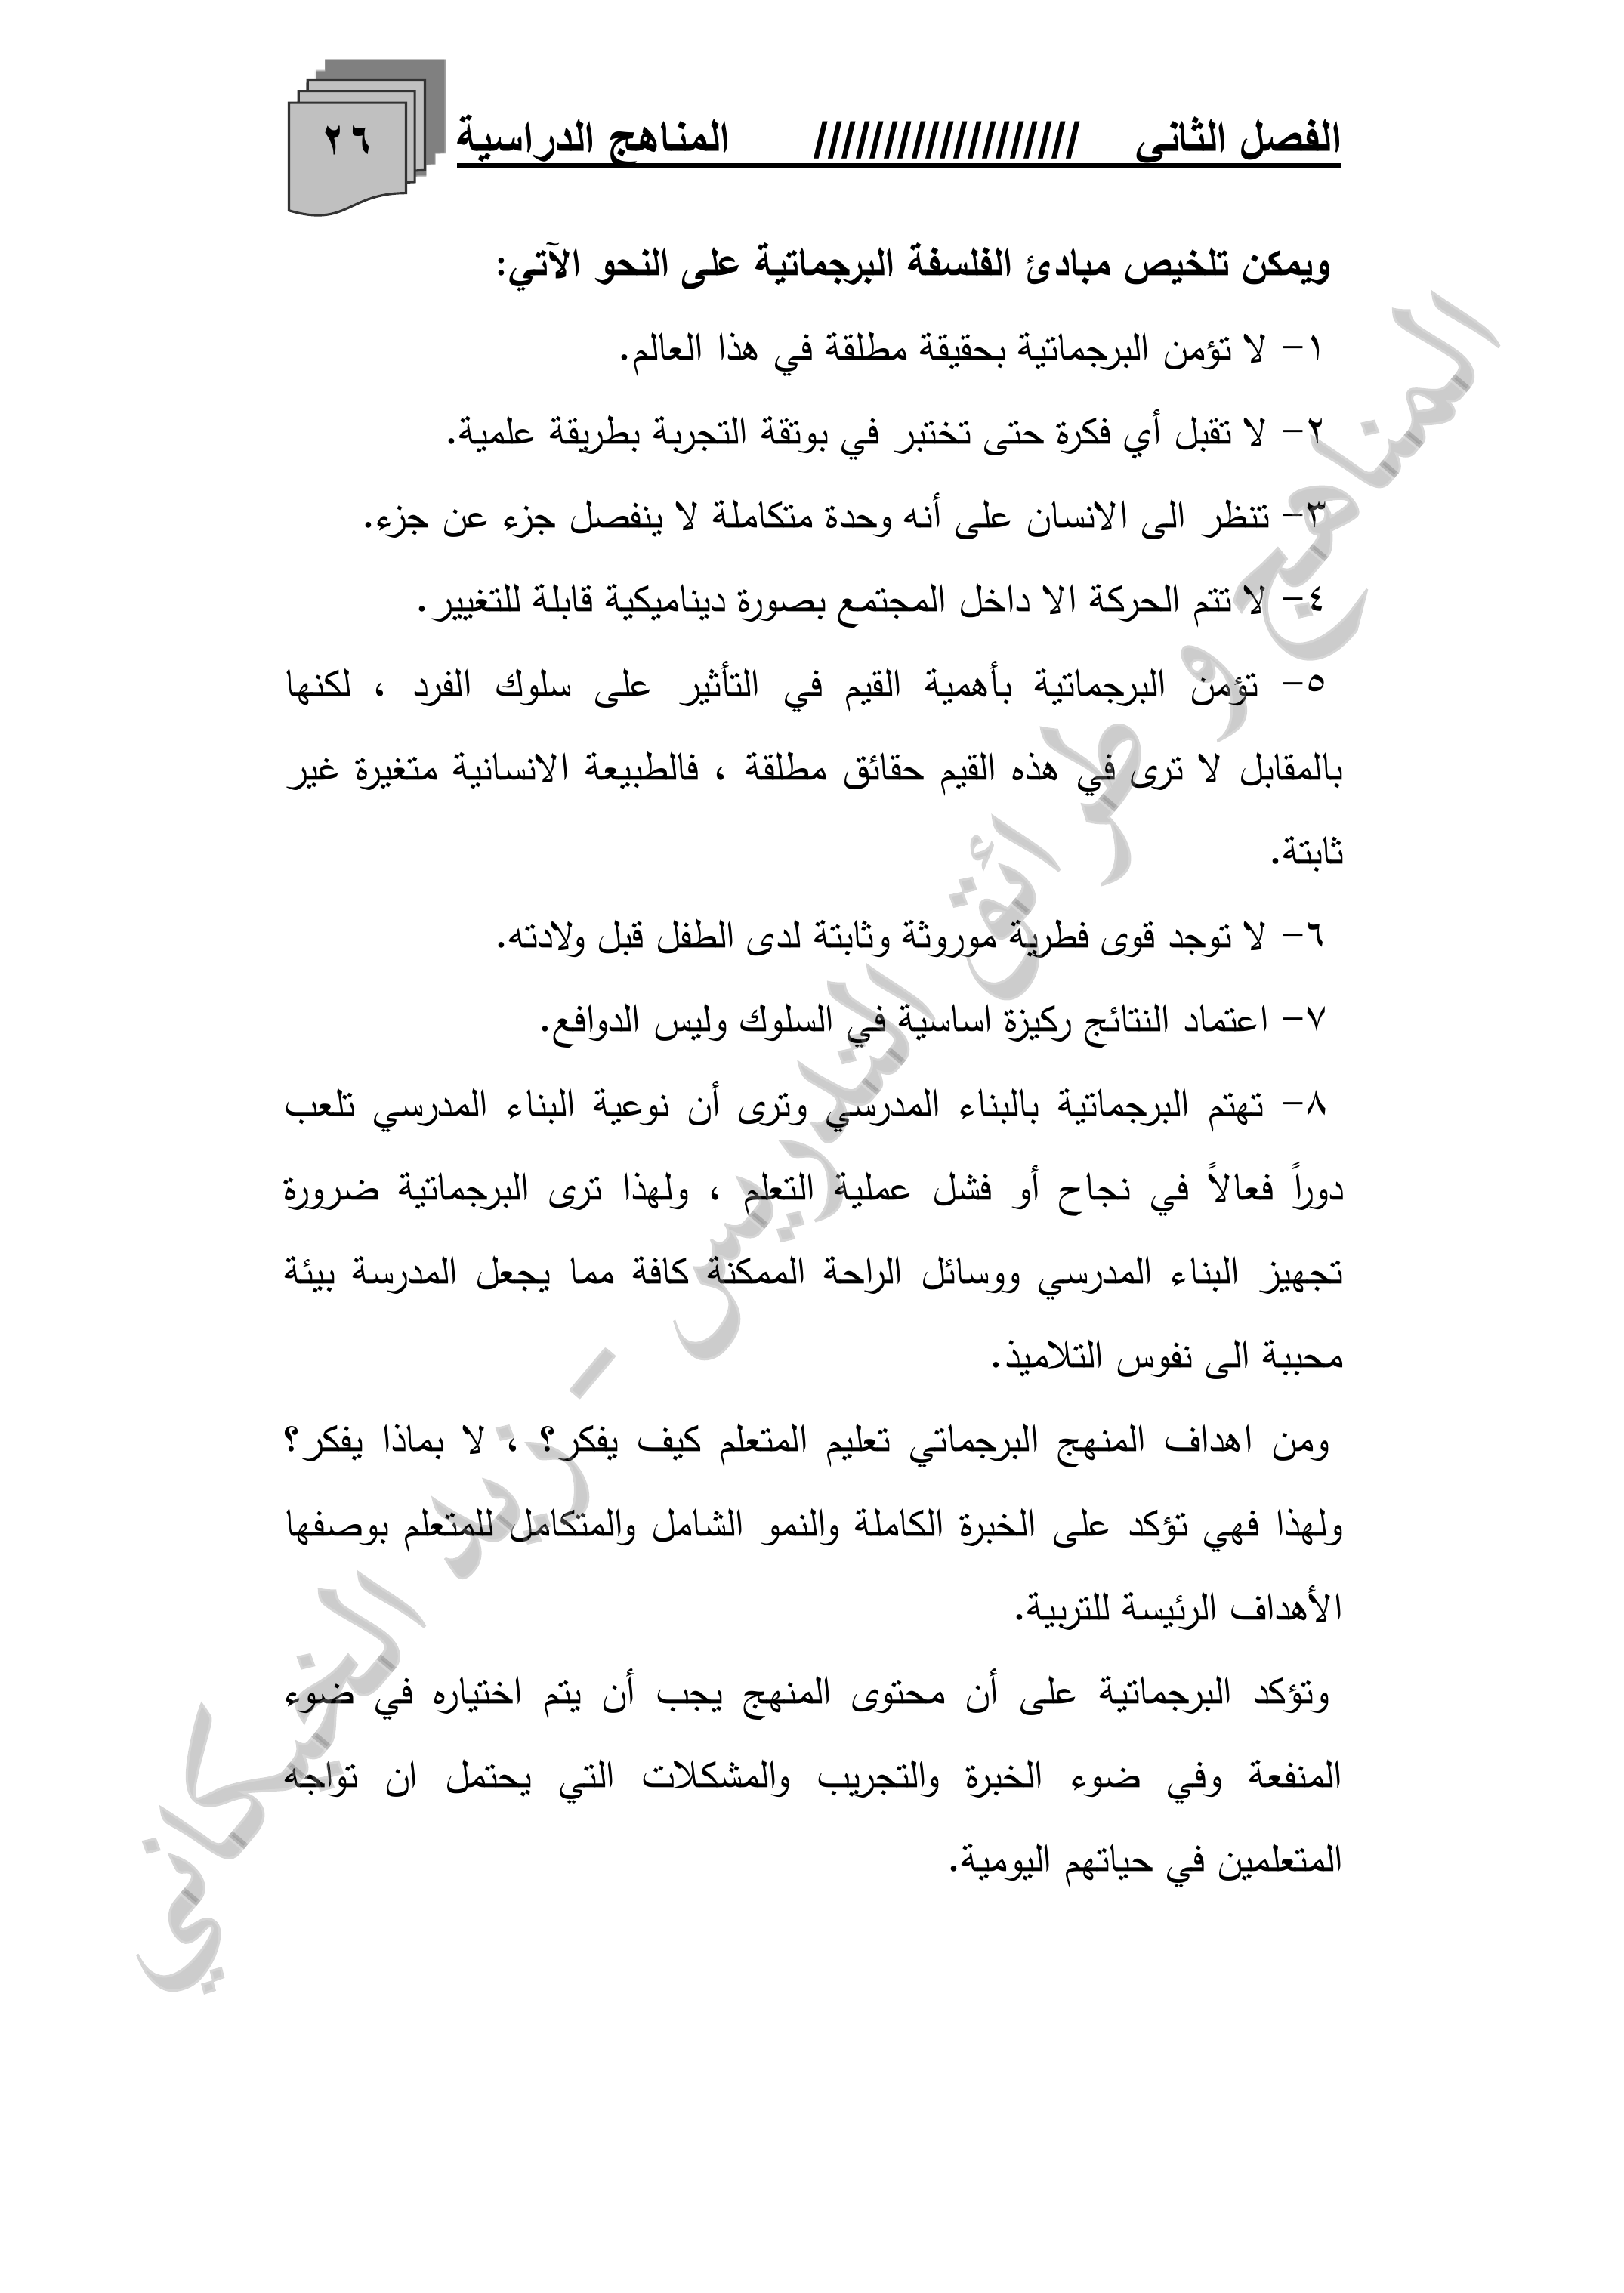 الفصل الثاني /////////////////// المناهج الدراسية ٢٦
ويمكن تلخيص مبادئ الفلسفة البرجماتية على النحو الآتي:
١- لا تؤمن البرجماتية بحقيقة مطلقة في هذا العالم.
٢- لا تقبل أي فكرة حتى تختبر في بوتقة التجربة بطريقة علمية.
٣- تنظر الى الانسان على أنه وحدة متكاملة لا ينفصل جزء عن جزء.
٤- لا تتم الحركة الا داخل المجتمع بصورة ديناميكية قابلة للتغيير.
٥- تؤمن البرجماتية بأهمية القيم في التأثير على سلوك الفرد ، لكنها
بالمقابل لا ترى في هذه القيم حقائق مطلقة ، فالطبيعة الانسانية متغيرة غير
ثابتة.
٦- لا توجد قوى فطرية موروثة وثابتة لدى الطفل قبل ولادته.
٧- اعتماد النتائج ركيزة اساسية في السلوك وليس الدوافع.
٨- تهتم البرجماتية بالبناء المدرسي وترى أن نوعية البناء المدرسي تلعب
دوراً فعالاً في نجاح أو فشل عملية التعلم ، ولهذا ترى البرجماتية ضرورة
تجهيز البناء المدرسي ووسائل الراحة الممكنة كافة مما يجعل المدرسة بيئة
محببة الى نفوس التلاميذ.
ومن اهداف المنهج البرجماتي تعليم المتعلم كيف يفكر؟ ، لا بماذا يفكر؟
ولهذا فهي تؤكد على الخبرة الكاملة والنمو الشامل والمتكامل للمتعلم بوصفها
الأهداف الرئيسة للتربية.
وتؤكد البرجماتية على أن محتوى المنهج يجب أن يتم اختياره في ضوء
المنفعة وفي ضوء الخبرة والتجريب والمشكلات التي يحتمل ان تواجه
المتعلمين في حياتهم اليومية.
المناهج و طرائق التدريس - زيد الخيكاني